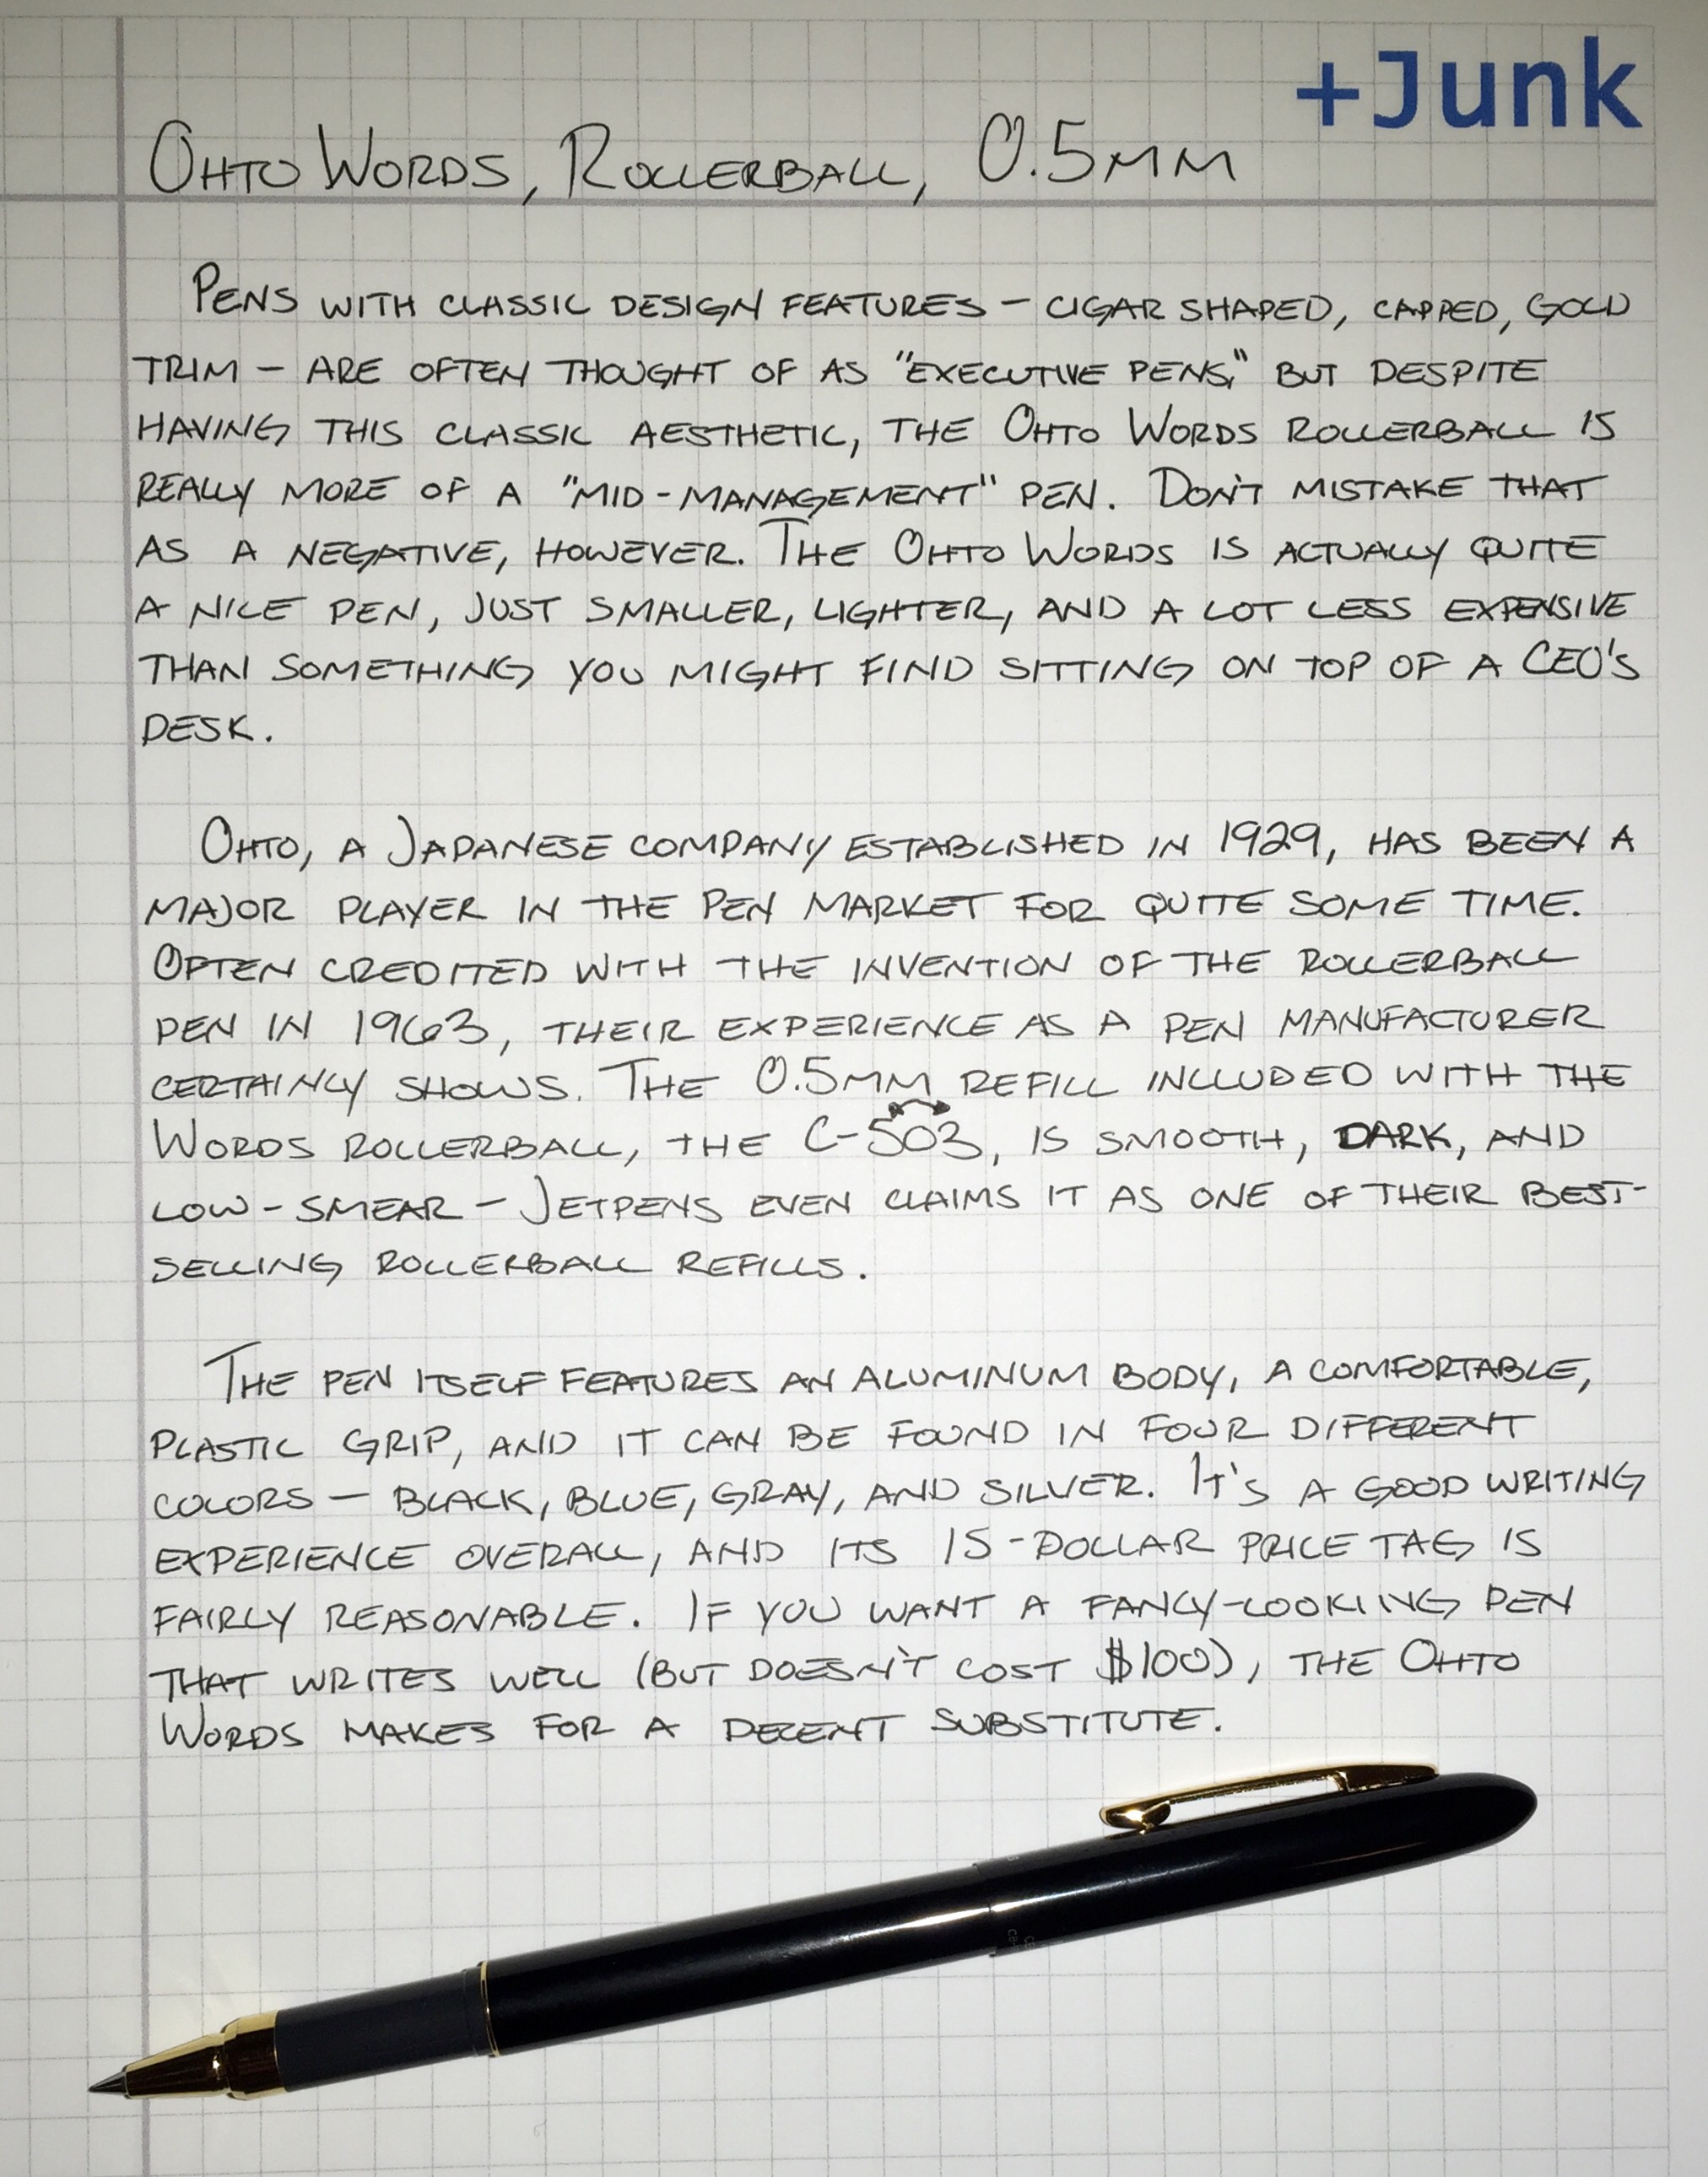 +Junk
OHTO WORDS, ROLLERBALL, 0.5MM
PENS WITH CLASSIC DESIGN FEATURES – CIGAR SHAPED, CAPPED, GOLD
TRIM – ARE OFTEN THOUGHT OF AS "EXECUTIVE PENS," BUT DESPITE
HAVING THIS CLASSIC AESTHETIC, THE OHTO WORDS ROLLERBALL IS
REALLY MORE OF A "MID-MANAGEMENT" PEN. DON'T MISTAKE THAT
AS A NEGATIVE, HOWEVER. THE OHTO WORDS IS ACTUALLY QUITE
A NICE PEN, JUST SMALLER, LIGHTER, AND A LOT LESS EXPENSIVE
THAN SOMETHING YOU MIGHT FIND SITTING ON TOP OF A CEO'S
DESK.
OHTO, A JAPANESE COMPANY ESTABLISHED IN 1929, HAS BEEN A
MAJOR PLAYER IN THE PEN MARKET FOR QUITE SOME TIME.
OFTEN CREDITED WITH THE INVENTION OF THE ROLLERBALL
PEN IN 1963, THEIR EXPERIENCE AS A PEN MANUFACTURER
CERTAINLY SHOWS. THE 0.5MM REFILL INCLUDED WITH THE
WORDS ROLLERBALL, THE C-503, IS SMOOTH, DARK, AND
LOW-SMEAR – JETPENS EVEN CLAIMS IT AS ONE OF THEIR BEST-
SELLING ROLLERBALL REFILLS.
THE PEN ITSELF FEATURES AN ALUMINUM BODY, A COMFORTABLE,
PLASTIC GRIP, AND IT CAN BE FOUND IN FOUR DIFFERENT
COLORS – BLACK, BLUE, GRAY, AND SILVER. IT'S A GOOD WRITING
EXPERIENCE OVERALL, AND ITS 15-DOLLAR PRICE TAG IS
FAIRLY REASONABLE. IF YOU WANT A FANCY-LOOKING PEN
THAT WRITES WELL (BUT DOESN'T COST $100), THE OHTO
WORDS MAKES FOR A DECENT SUBSTITUTE.